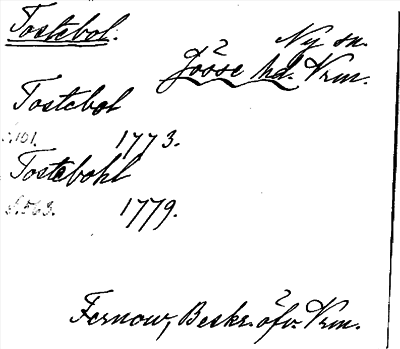 Tostebol.
Ny sn.
Jösse hd. Vrm.
Tostebol
s. 101. 1773.
Tostebohl
s. 563. 1779.
Fernow, Beskr. öfv. Vrm.